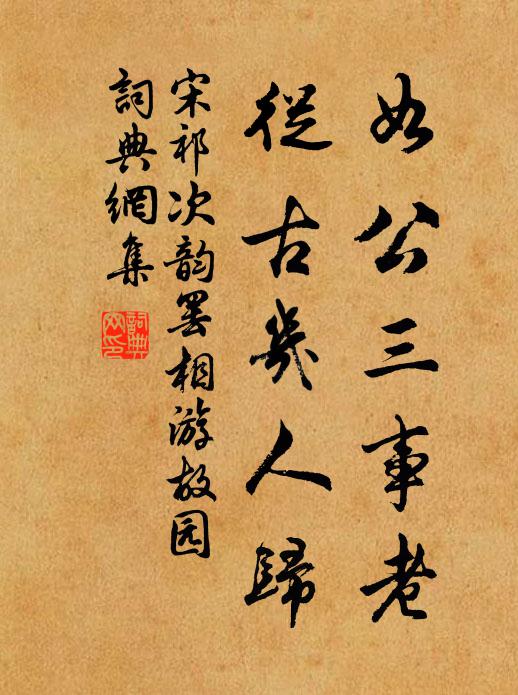 如公三事老
從古幾人歸
宋祁次韵罢相游故园
詞典網集
詞典網印